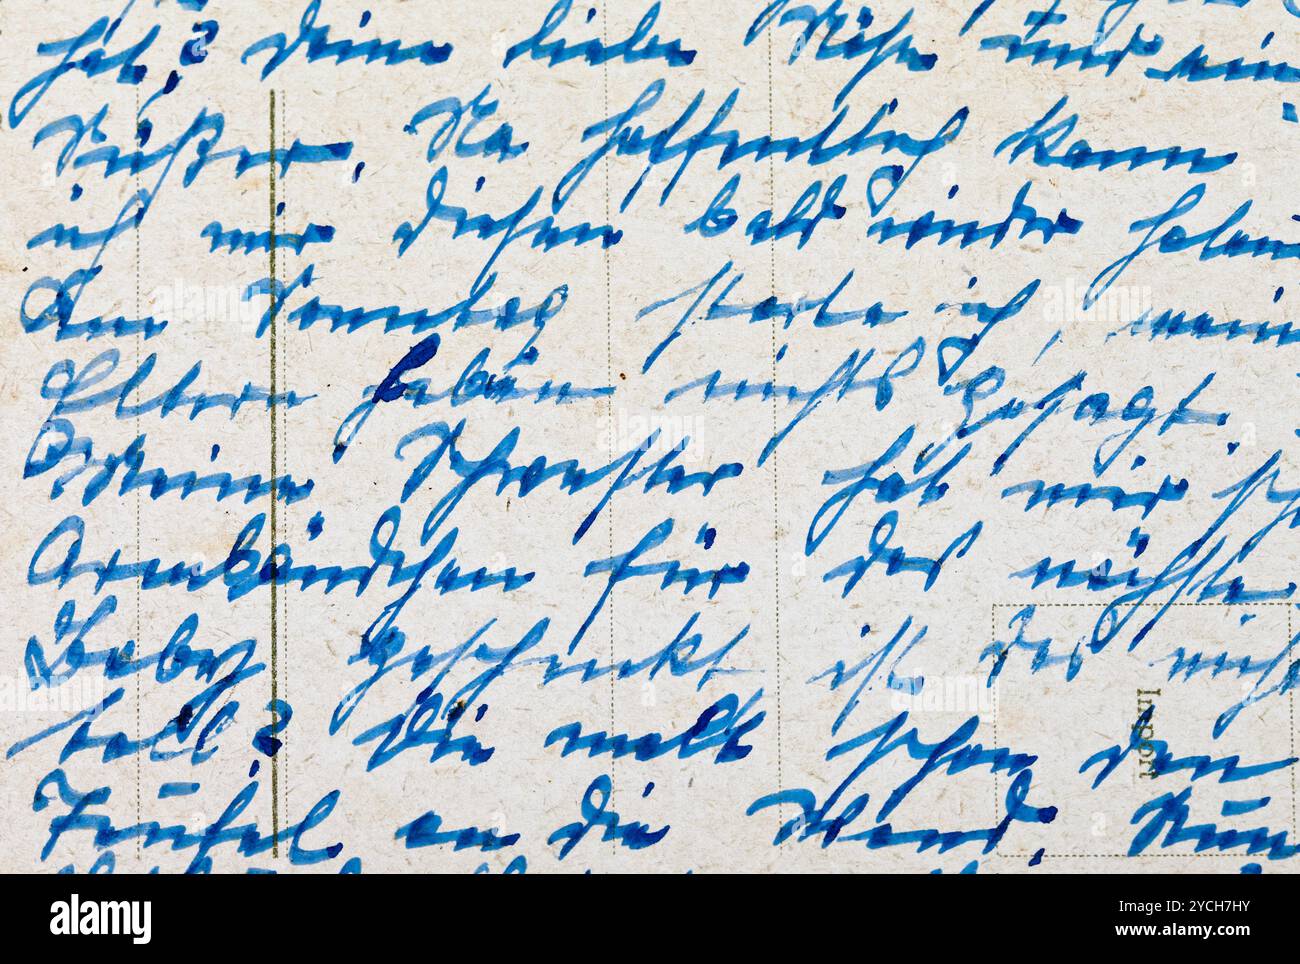 hab? Deine liebe Nähe und ein
Süßer. Na hoffentlich kann
ich mir diesen bald wieder holen
Am Sonntag startete ich, mein
Eltern haben nichts gesagt.
Meine Schwester hat mir
Armbändchen für das nächste
Baby geschenkt ist das nich
toll? Die malt schon den
Teufel an die Wand. Nun
Import
alamy
Image ID: 2YCH7HY
www.alamy.com